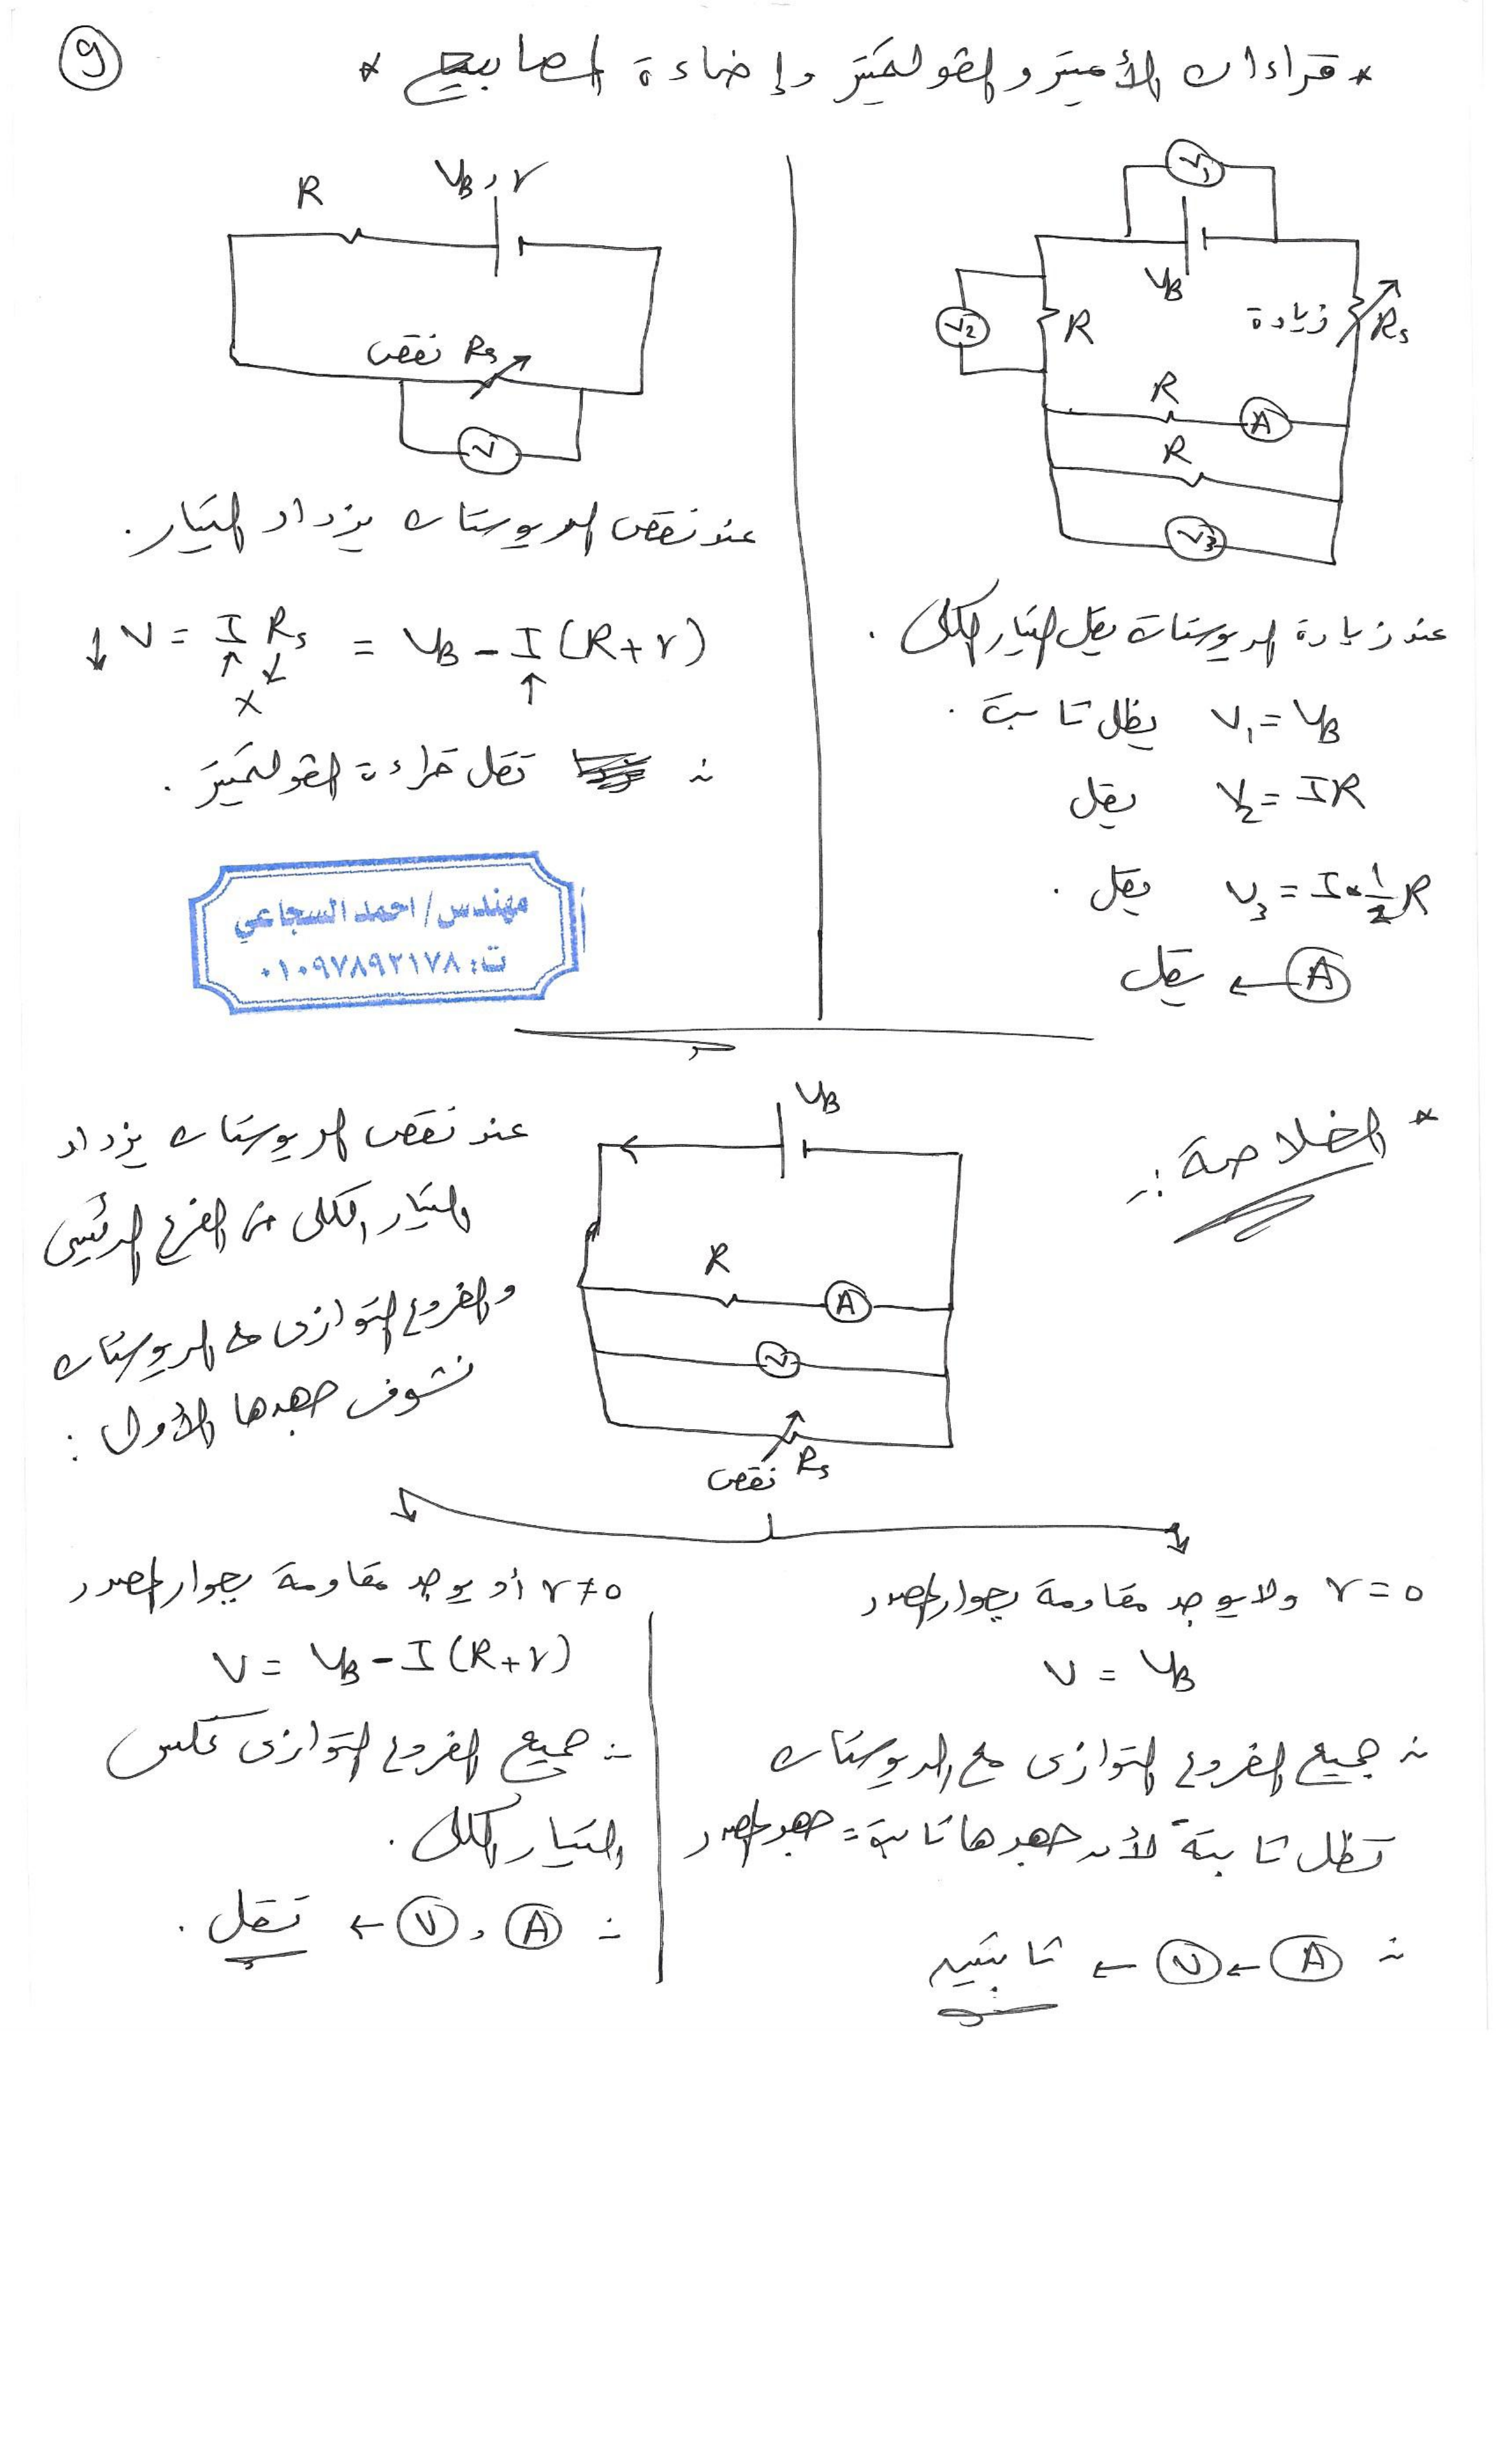 ٩
* قراءات الأميتر والفولتميتر وإضاءة المصابيح *
V1
VB
V2
R
زيادة Rs
R
A
R
V3
عند زيادة الريوستات يقل التيار الكلى .
V1 = VB يظل ثابت .
V2 = IR يقل
V3 = I × 1/2 R يقل .
A ← يقل
R
VB, r
نقص Rs
V
عند نقص الريوستات يزداد التيار .
↓ V = I Rs = VB - I (R + r)
↑ ↓ ↑
×
∴ تقل قراءة الفولتميتر .
مهندس/ احمد السجاعي
ت: ٠١٠٩٧٨٩٢١٧٨
* الخلاصة :-
VB
R
A
V
نقص Rs
عند نقص الريوستات يزداد
التيار الكلى فى الفرع الرئيسى
والفروع التوازى مع الريوستات
نشوف جهدها الأول :
r = 0 ولا يوجد مقاومة بجوار المصدر
V = VB
∴ جميع الفروع التوازى مع الريوستات
تظل ثابتة لأن جهدها ثابت = جهد المصدر
∴ A ← V ← ثابتين
r ≠ 0 أو يوجد مقاومة بجوار المصدر
V = VB - I (R + r)
∴ جميع الفروع التوازى عكس
التيار الكلى .
∴ A , V ← تقل .